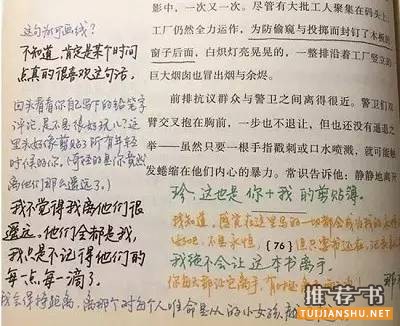 这句为何画线?
不知道,肯定是某个时间
点真的很喜欢这句话。
回头看看你自己写下的铅笔字
评论,是不是很好玩儿?这
里头好像剪贴了所有年轻
时候的你。(奇怪的是你竟然
离他们那么遥远了。)
我不觉得我离他们很
遥远。他们全都是我,
我只是不记得他们的
每一点每一滴了。
影中,一次又一次。尽管有大批工人聚集在码头上
工厂仍然全力运作,为防偷窥与投掷而封钉了木板的
窗子后面,白炽灯亮晃晃的,一整排沿着工厂竖立的
巨大烟囱也冒出烟与余烬。
前排抗议群众与警卫之间离得很近。警卫们双
臂交叉抱在胸前,一步也不退让,但也还没有逼退之
举——虽然只要一根手指戳刺或口水喷溅,就可能触
发蟠缩在他们内心的暴力。常识告诉他:静静地离开
这也是你+我的剪贴簿。
我知道,感觉在这里写的一切都会成为我的永
不是永恒,{76}但只要书还在,
我绝不会让这本书离手。
保持距离,离那个对每个人唯命是从的小女孩
推荐书
TUIJIANSHU.NET